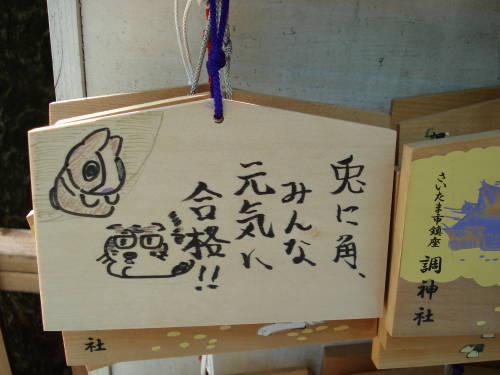 兎に角、
みんな
元気に
合格!!
さいたま市鎮座
調神社
社